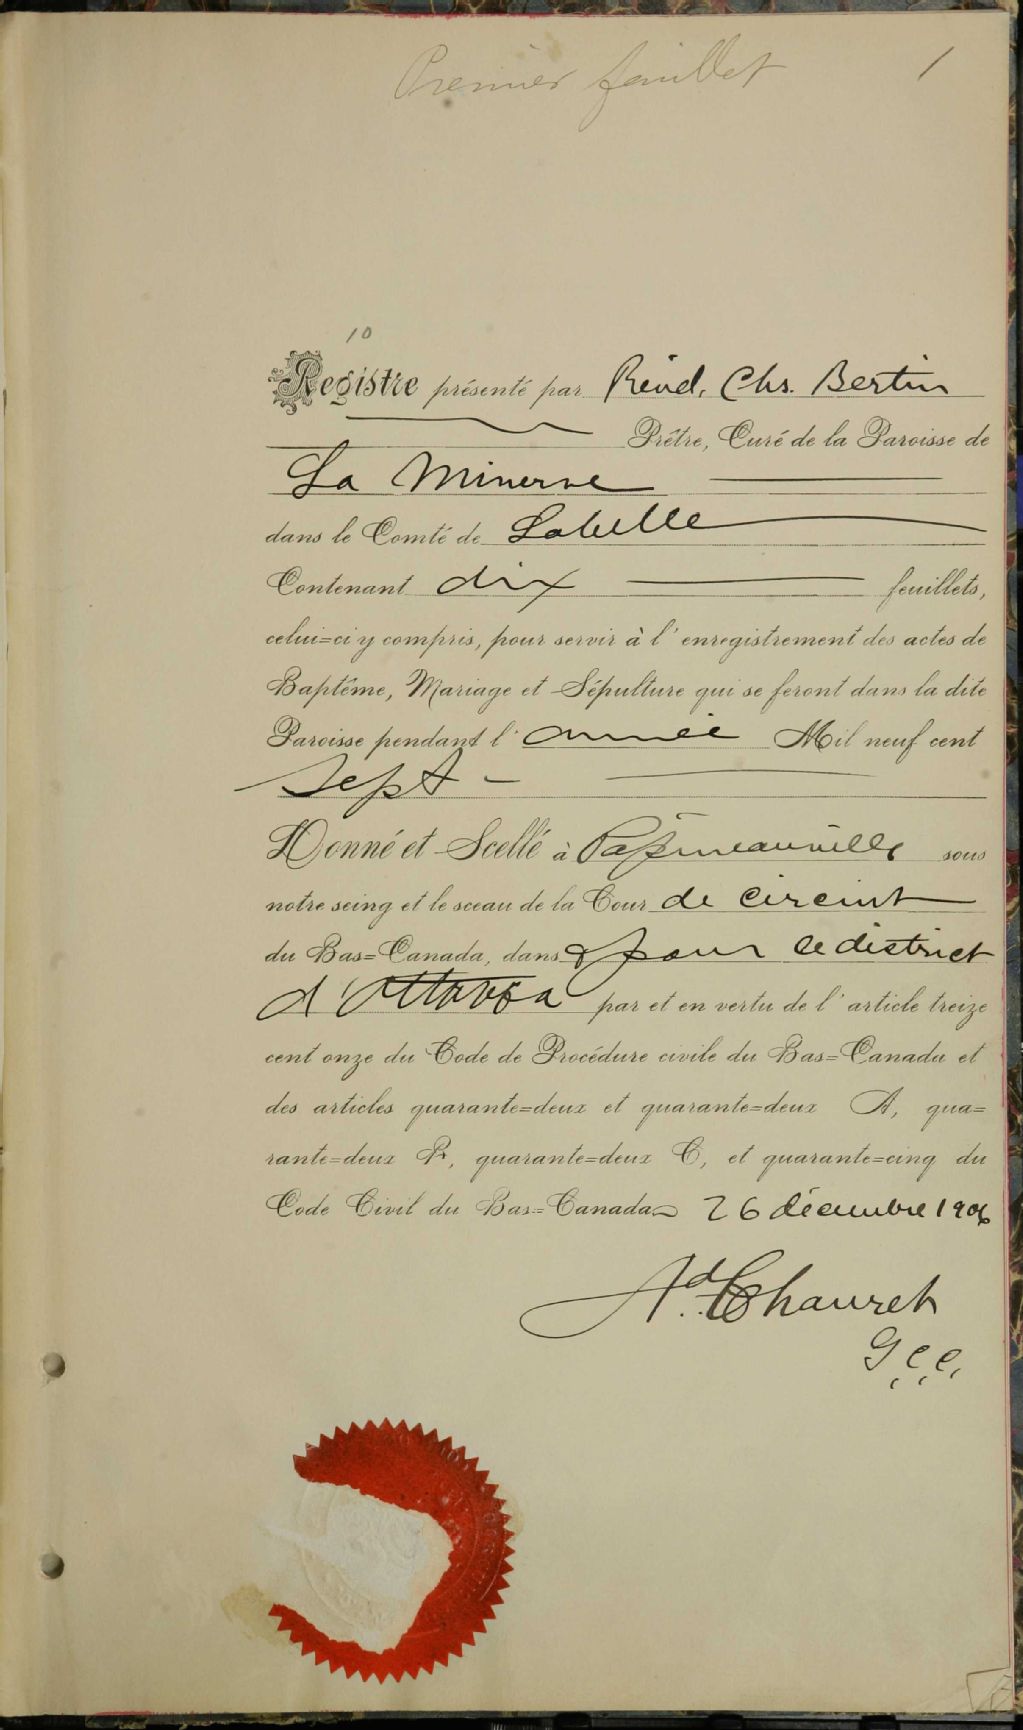 Premier feuillet 1
10
Registre présenté par Révd. Chs. Bertin
Prêtre, Curé de la Paroisse de
La Minerve
dans le Comté de Labelle
Contenant dix feuillets,
celui=ci y compris, pour servir à l'enregistrement des actes de
Baptême, Mariage et Sépulture qui se feront dans la dite
Paroisse pendant l'année Mil neuf cent
sept -
Donné et Scellé à Papineauville sous
notre seing et le sceau de la Cour de circuit
du Bas=Canada, dans & pour le district
d'Ottawa par et en vertu de l'article treize
cent onze du Code de Procédure civile du Bas=Canada et
des articles quarante=deux et quarante=deux A, qua=
rante=deux B, quarante=deux C, et quarante=cinq du
Code Civil du Bas=Canada 26 décembre 1906
Ad. Chauret
G.C.C.